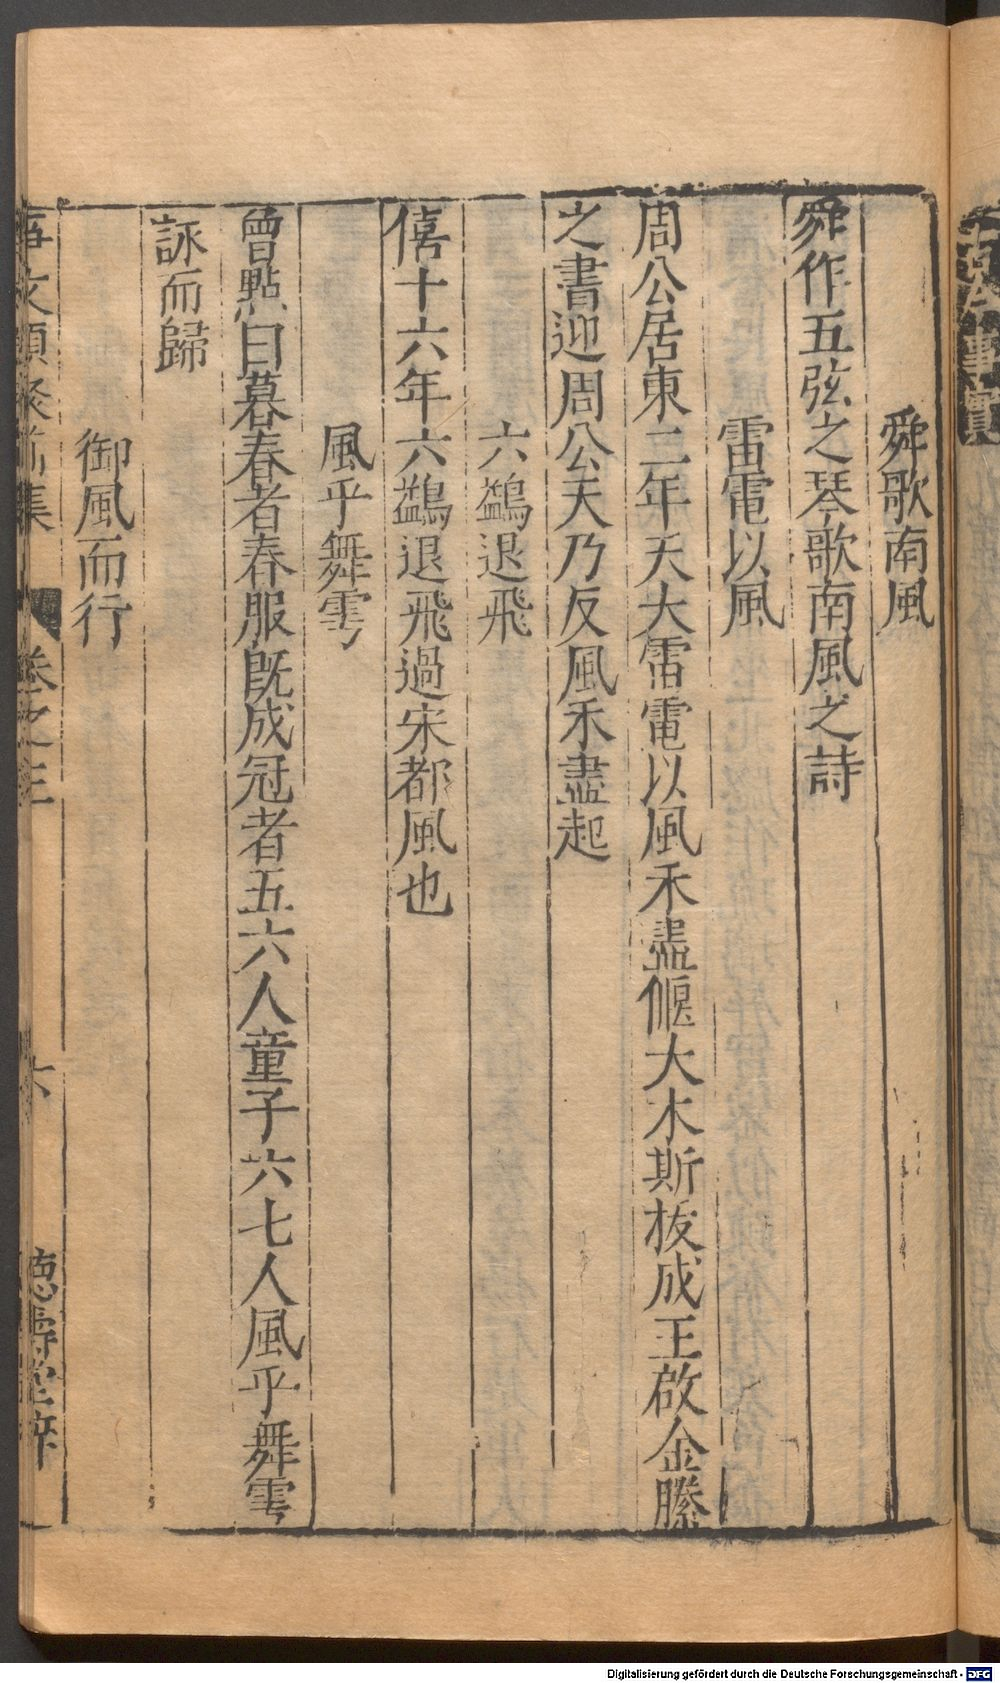 舜歌南風
舜作五弦之琴歌南風之詩
雷電以風
周公居東二年天大雷電以風禾盡偃大木斯拔成王啟金縢
之書迎周公天乃反風禾盡起
六鷁退飛
僖十六年六鷁退飛過宋都風也
風乎舞雩
曾點曰暮春者春服既成冠者五六人童子六七人風乎舞雩
詠而歸
御風而行
事文類聚前集 卷之三 六 德壽堂梓
Digitalisierung gefördert durch die Deutsche Forschungsgemeinschaft - DFG